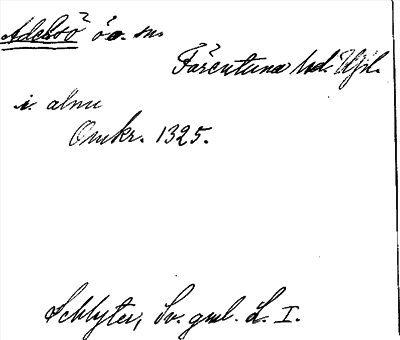 Adelsö ö o. sn
Färentuna hd. Uppl.
i. alnu
Omkr. 1325.
Schlyter, Sv. gml. L. I.